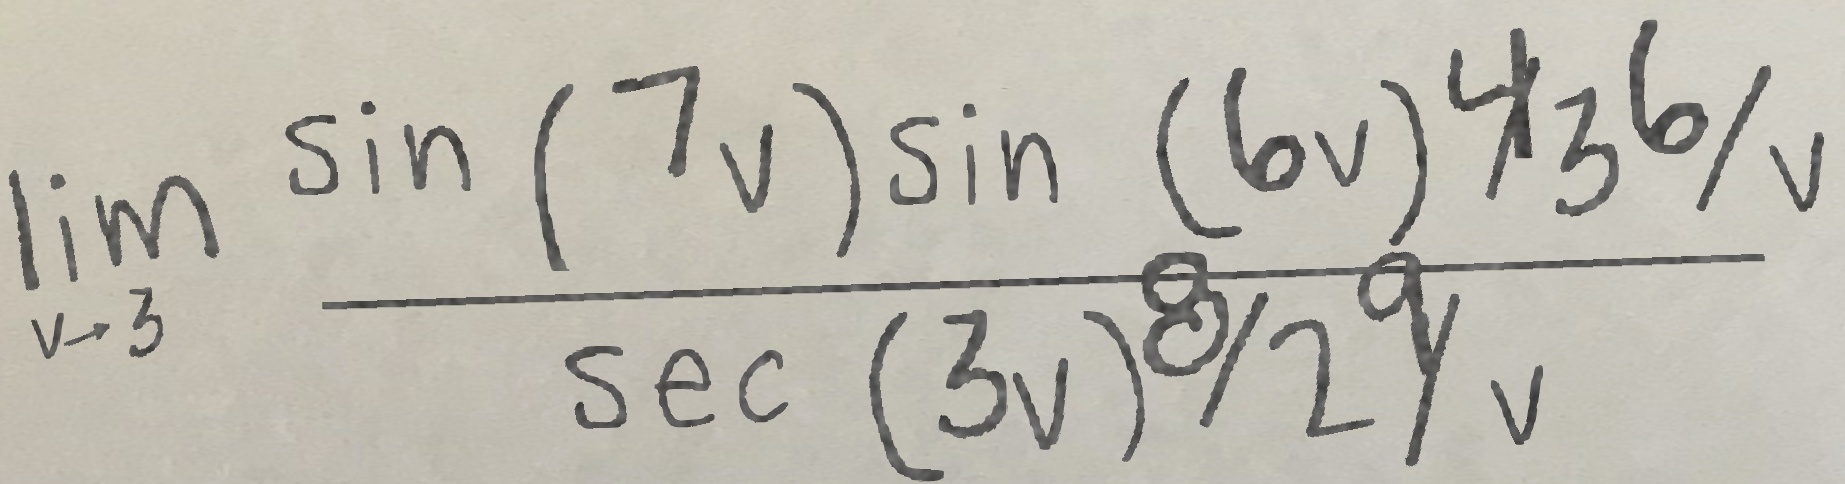 lim v→3 sin(7v)sin(6v)^4/3^6/v
sec(3v)^8/2^9/v